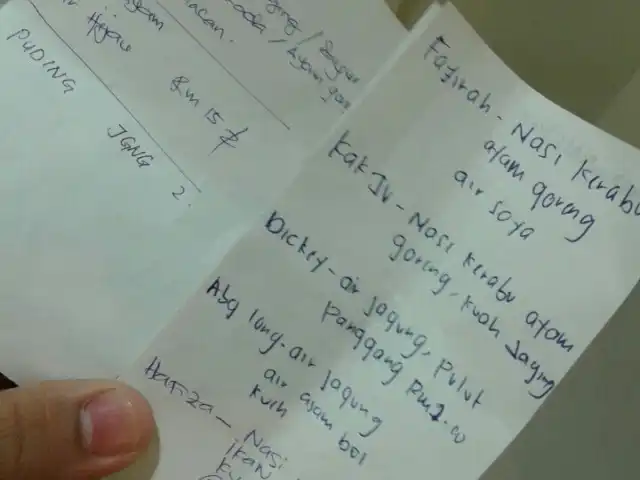 Hijau
Rm 15
PUDING
JGNG 2.
Fatirah - Nasi kerabu
ayam goreng
air soya
Kak Ju - Nasi kerabu ayam
goreng, kuah Jagung
Dickey - air jagung, Pulut
Panggang Rm2.00
Abg long - air jagung
air asam boi
kuih
Hafiza - Nasi
ikan